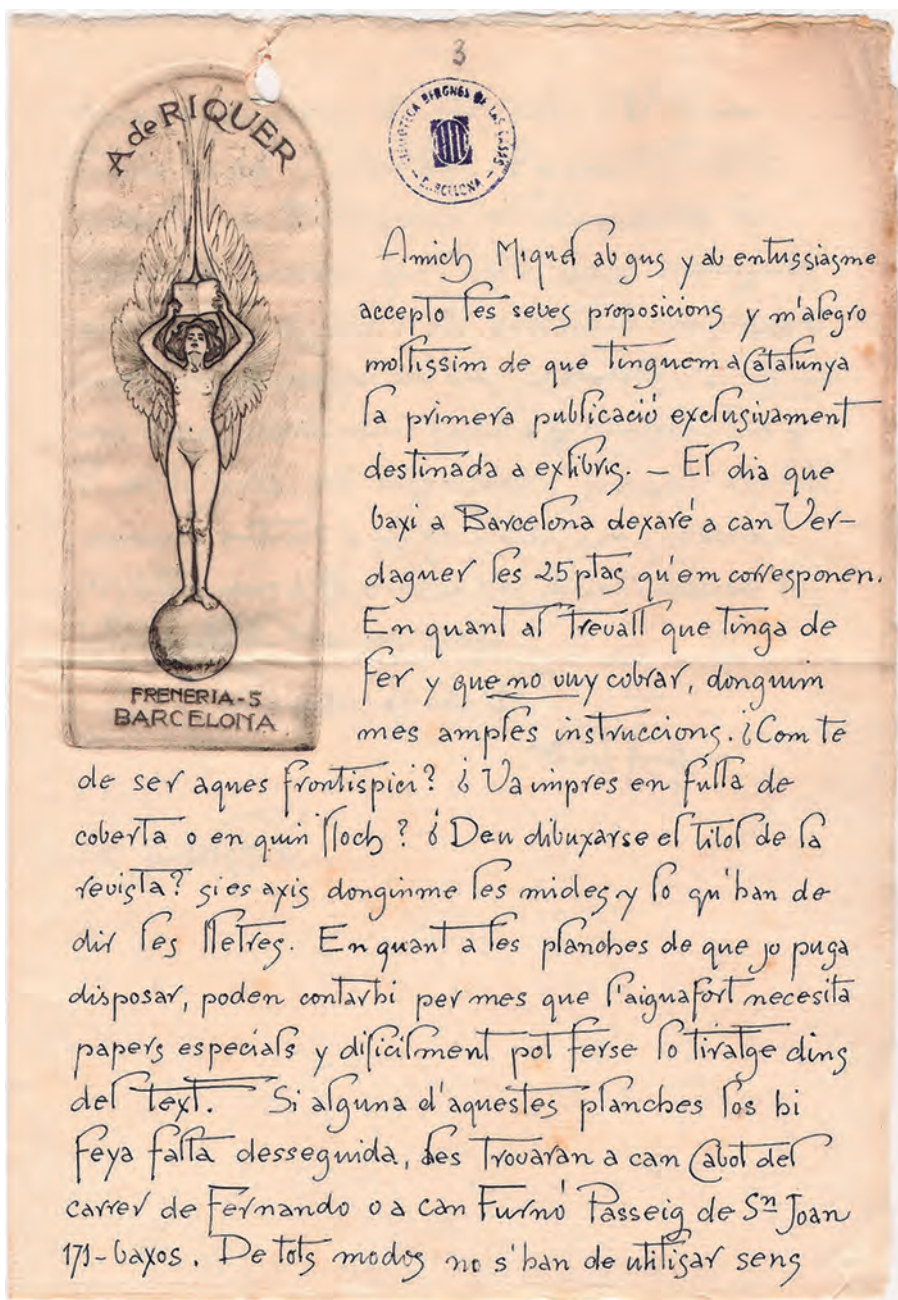 3
A de RIQUER
BIBLIOTECA BERGNES DE LAS CASAS
- BARCELONA -
Amich Miquel ab gus y ab entussiasme
accepto les seves proposicions y m'alegro
moltissim de que tinguem a Catalunya
la primera publicació exclusivament
destinada a exlibris. — El dia que
baxi a Barcelona dexaré a can Ver-
daguer les 25 ptas qu'em corresponen.
En quant al trevall que tinga de
fer y que no vuy cobrar, donguim
mes amples instruccions. ¿Com te
FRENERIA-5
BARCELONA
de ser aques frontispici? ¿Va impres en fulla de
coberta o en quin lloch? ¿Deu dibuxarse el titol de la
revista? si es axis donginme les mides y lo qu'han de
dir les lletres. En quant a les planches de que jo puga
disposar, poden contarhi per mes que l'aiguafort necesita
papers especials y dificilment pot ferse lo tiratge dins
del text. Si alguna d'aquestes planches los hi
feya falta desseguida, les trovaran a can Cabot del
carrer de Fernando o a can Furnó Passeig de Sn Joan
171-baxos. De tots modos no s'han de utilisar sens